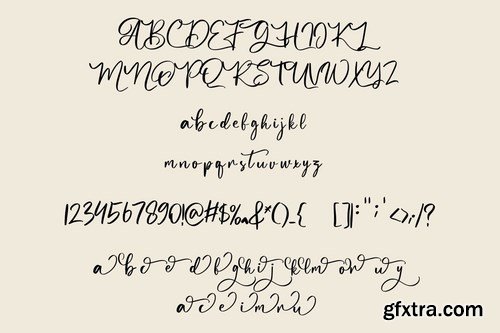 ABCDEFGHIJKL
MNOPQRSTUVWXYZ
abcdefghijkl
mnopqrstuvwxyz
1234567890!@#$%^&*()_{ []|:";'<>,;/?
a b c d e f g h i j k l m o u w y
a e i m n u
gfxtra.com